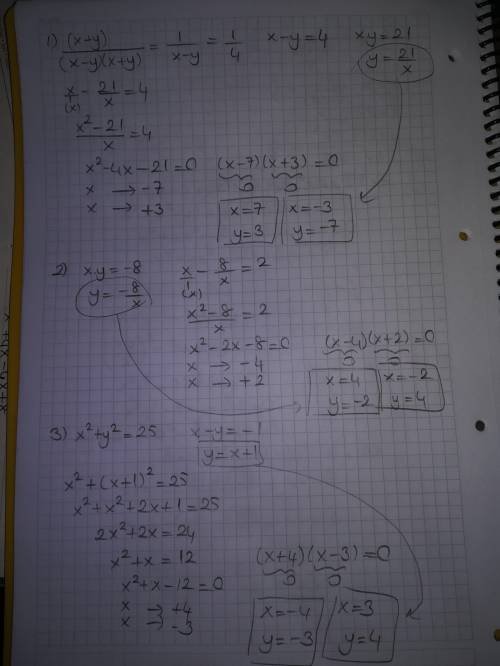 1) (x+y)/((x-y)(x+y)) = 1/(x-y) = 1/4   x-y=4   xy=21
y = 21/x
x/1 - 21/x = 4
(x)
(x²-21)/x = 4
x²-4x-21=0   (x-7)(x+3)=0
x → -7   0   0
x → +3   x=7   x=-3
y=3   y=-7
2) x.y=-8   x/1 - 8/x = 2
y = -8/x   (x)
(x²-8)/x = 2
x²-2x-8=0   (x-4)(x+2)=0
x → -4   0   0
x → +2   x=4   x=-2
y=-2   y=4
3) x²+y²=25   x-y=-1
y=x+1
x²+(x+1)²=25
x²+x²+2x+1=25
2x²+2x=24
x²+x=12   (x+4)(x-3)=0
x²+x-12=0   0   0
x → +4   x=-4   x=3
x → -3   y=-3   y=4